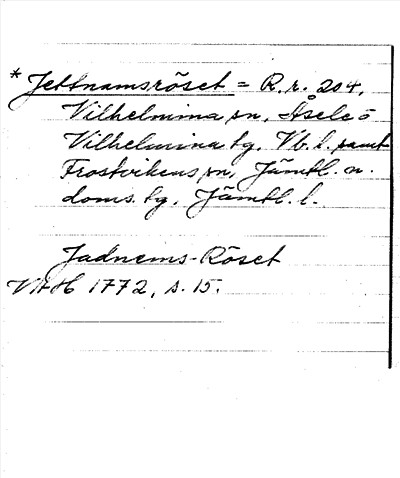 * Jettnamsröset = R.r. 204,
Vilhelmina sn, Åsele o
Vilhelmina tg, Vb. l. samt
Frostvikens sn, Jämtl. n.
doms. tg, Jämtl. l.
Jadnems-Röset
1772, s. 15.